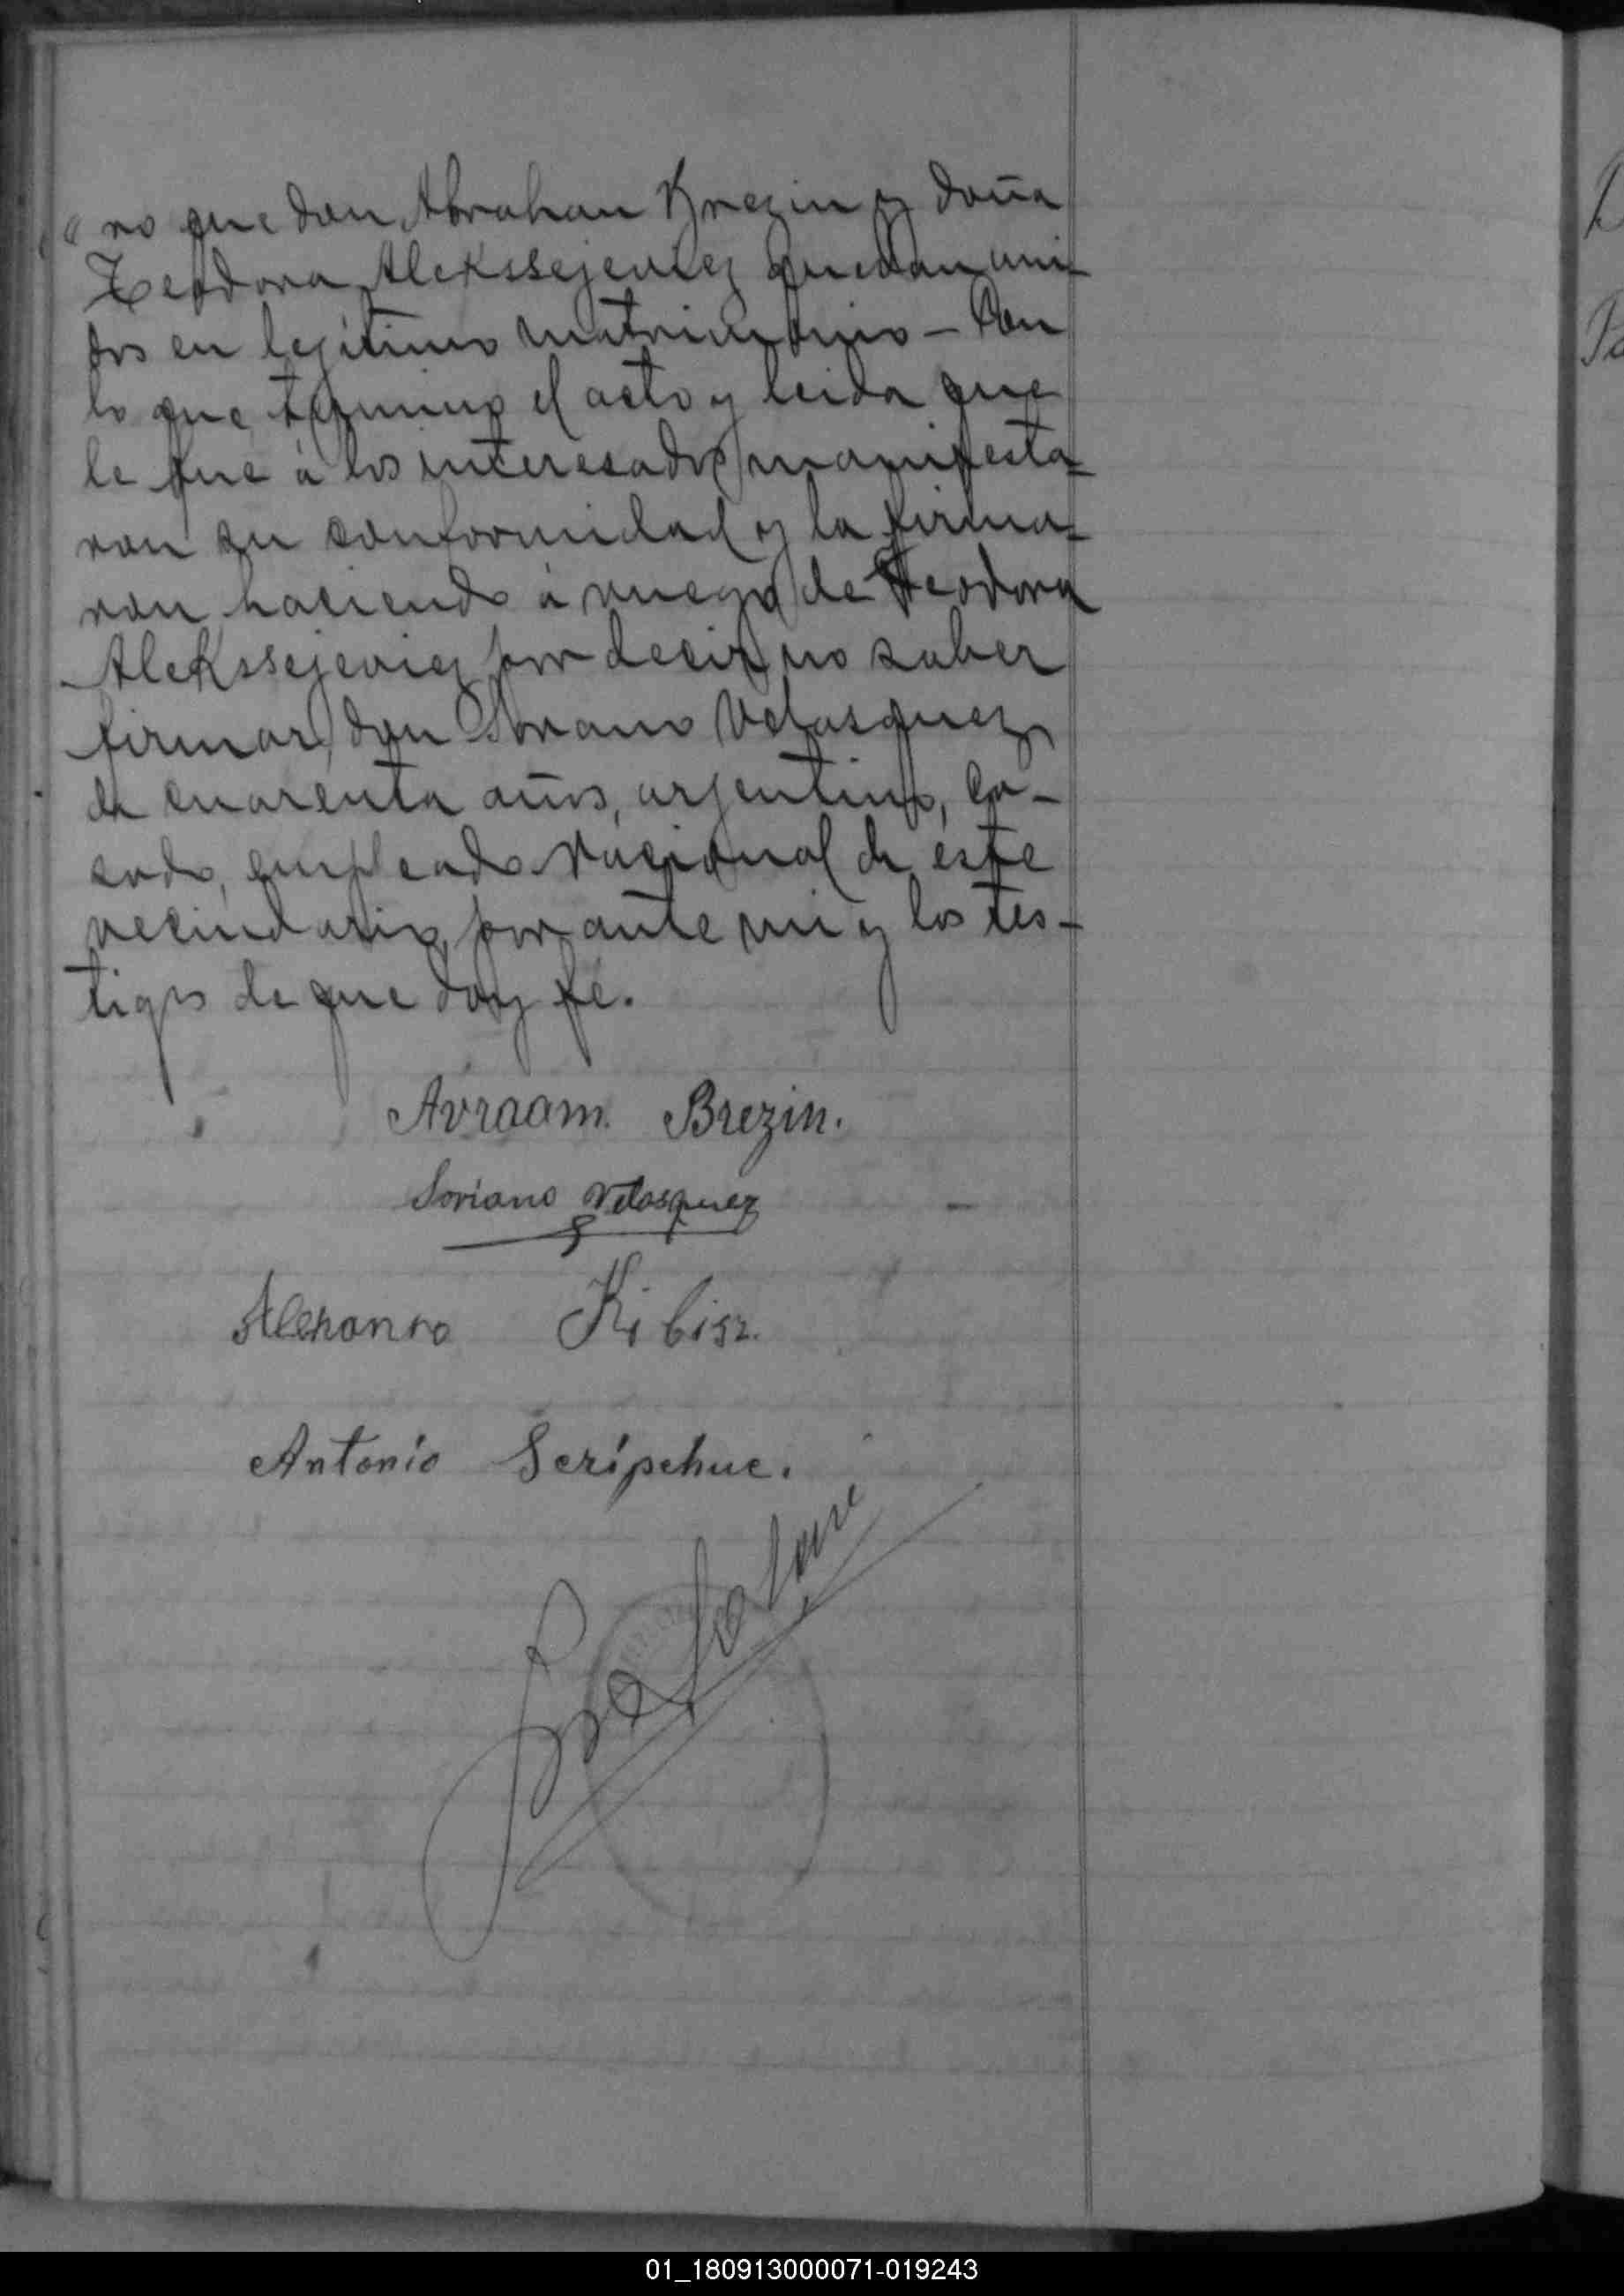 "ro que don Abrahan Brezin y doña
Teodora Alekssejeviez quedan uni-
dos en legítimo matrimonio - Con
lo que terminó el acto y leida que
le fué á los interesados manifesta-
ron su conformidad y la firma-
ron haciendo á ruego de Teodora
Alekssejeviez por decir no saber
firmar, don Soriano Velasquez,
de cuarenta años, arjentino, ca-
sado, empleado nacional de éste
vecindario, por ante mi y los tes-
tigos de que doy fé.
Avraam. Brezin.
Soriano Velasquez
Kibisz.
Antonio Seripchuc.
01_180913000071-019243